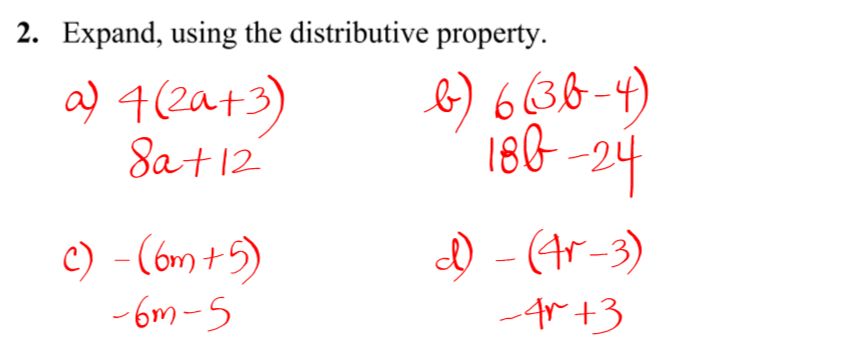 2. Expand, using the distributive property.
a) 4(2a+3)
8a+12
b) 6(3b-4)
18b-24
c) -(6m+5)
-6m-5
d) -(4r-3)
-4r+3